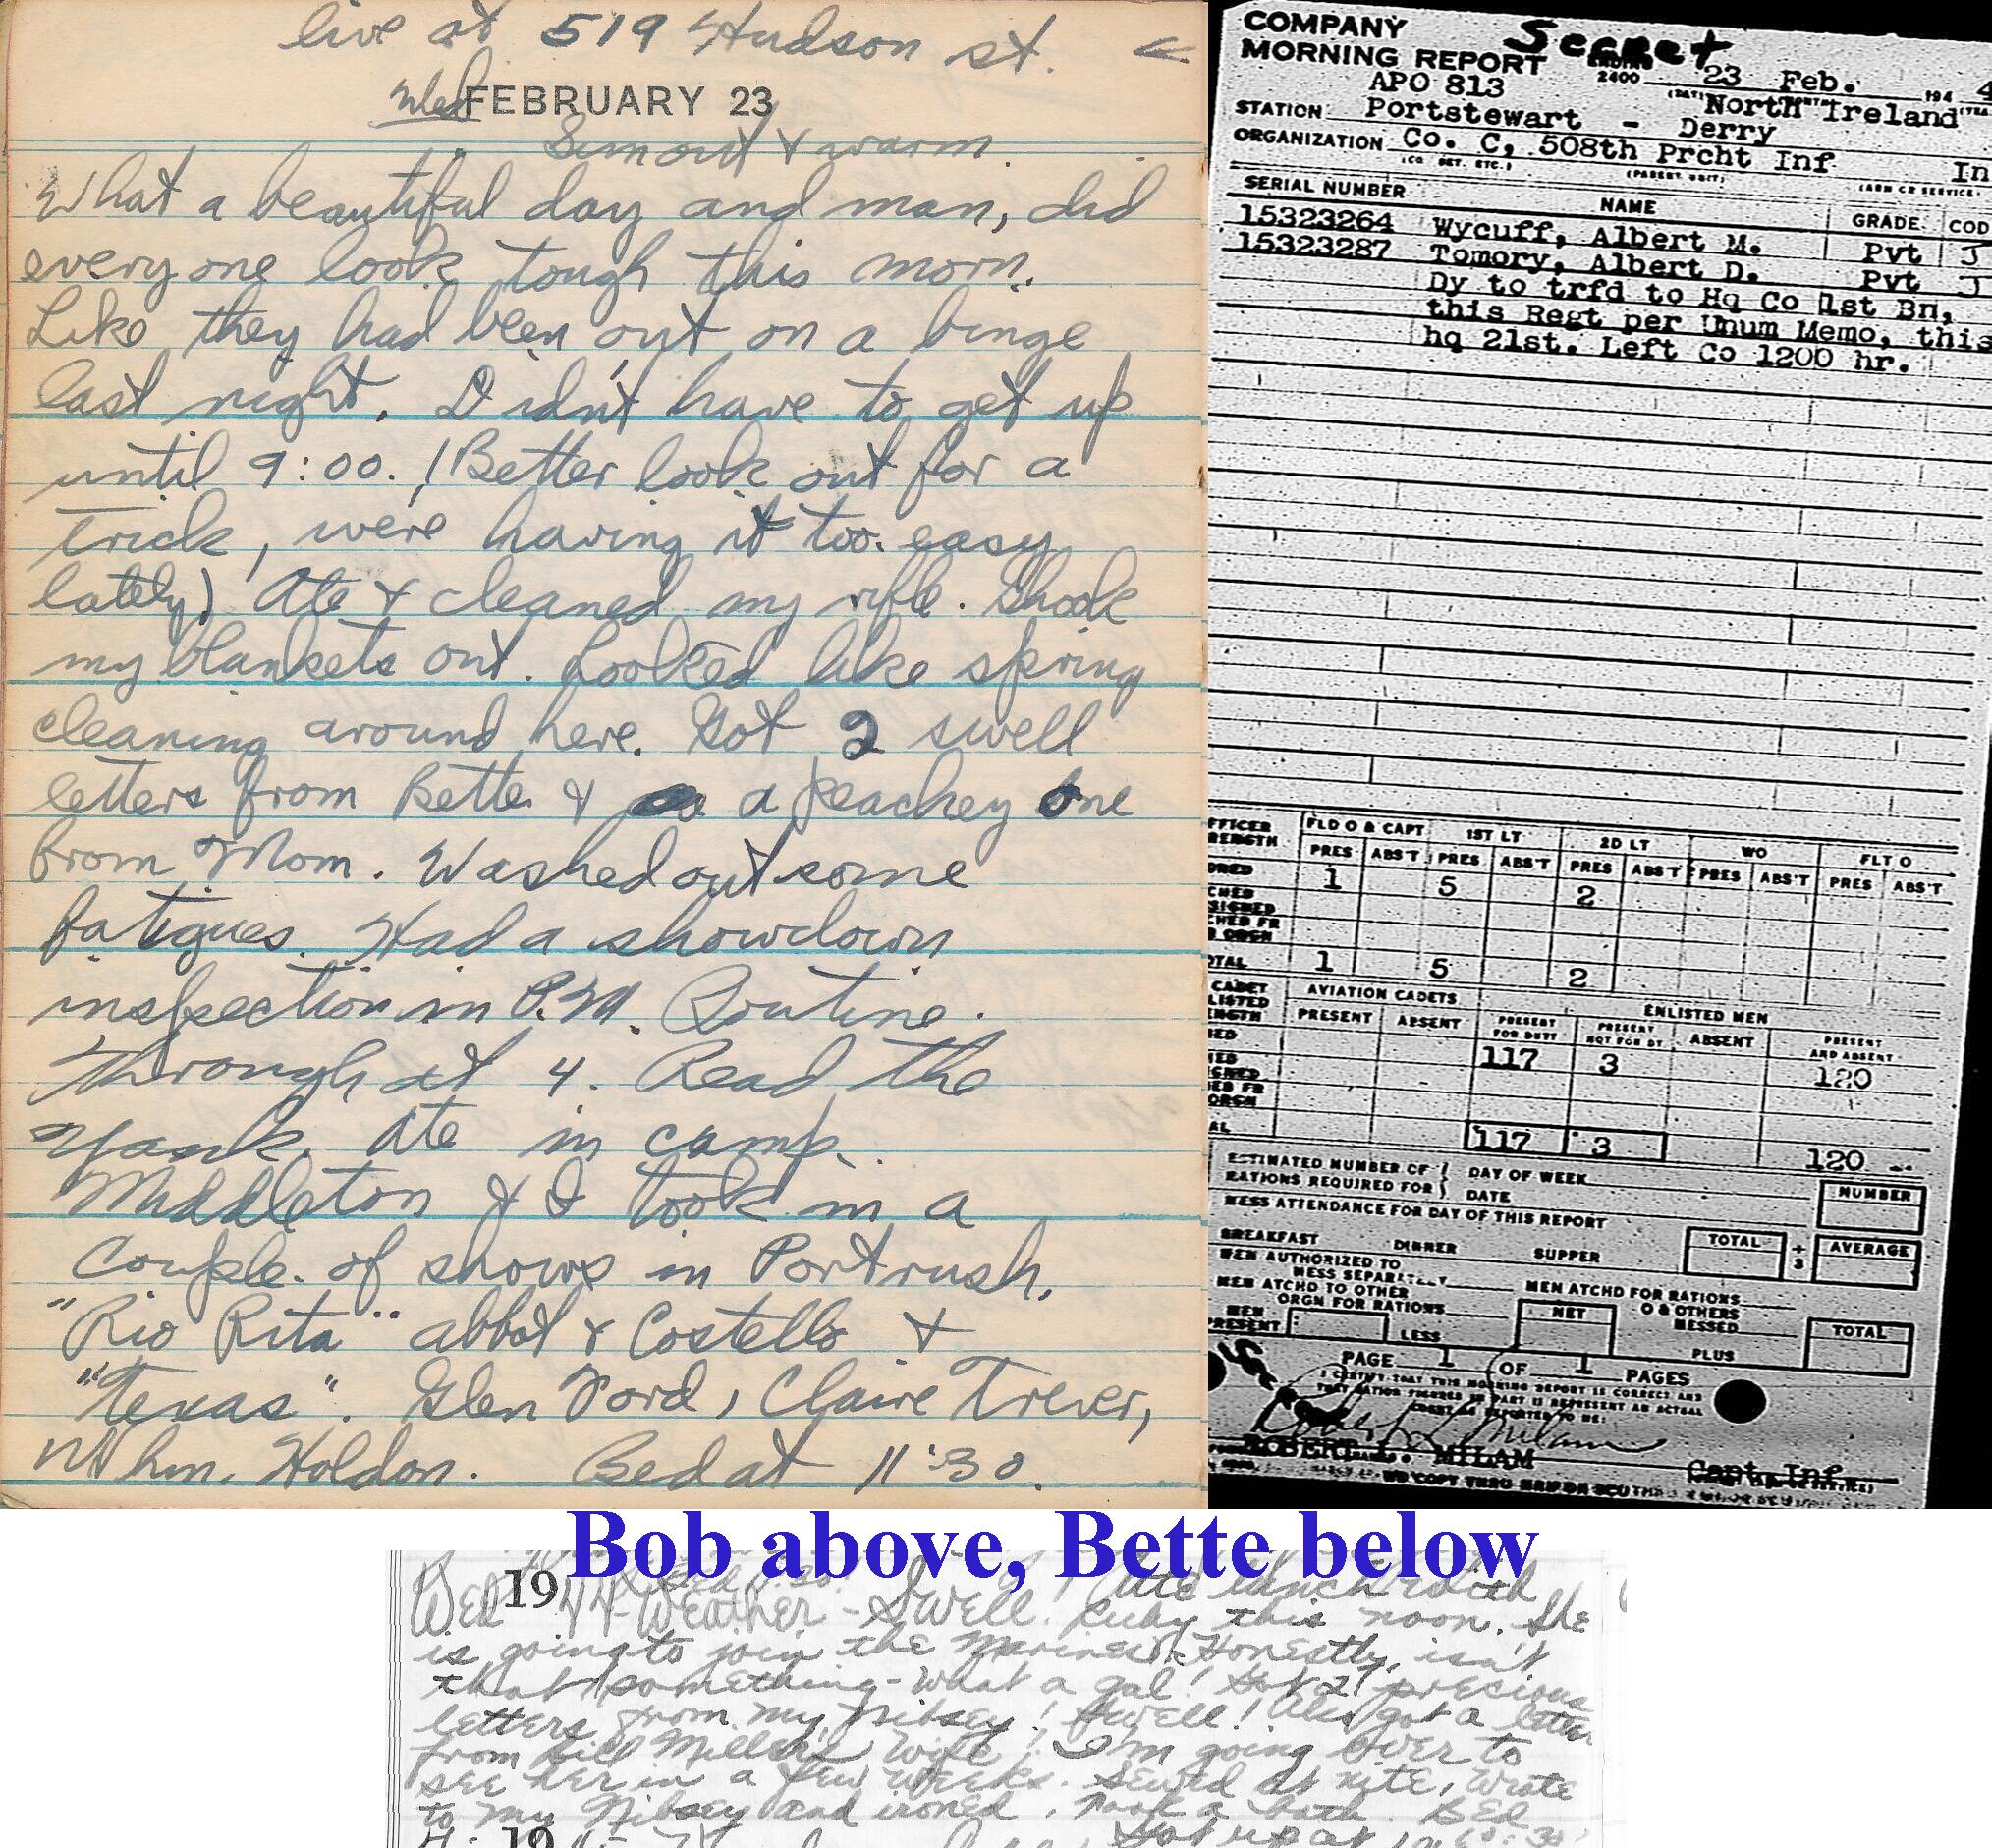 live at 519 Hudson st. <
Wed FEBRUARY 23
Sun out & warm.
What a beautiful day and man, did
everyone look tough this morn.
Like they had been out on a binge
last night. Didn't have to get up
until 9:00. (Better look out for a
trick, were having it too easy
lately) Ate & cleaned my rifle. Shook
my blankets out. Looked like spring
cleaning around here. Got 2 swell
letters from Bette & a peachey one
from Mom. Washed out some
fatigues. Had a showdown
inspection in P.M. Routine.
Through at 4. Read the
Yank. Ate in camp.
Middleton & I took in a
couple of shows in Portrush.
"Rio Rita" abbot & Costello &
"Texas". Glen Ford, Claire Trever,
Wm. Holdon. Bed at 11:30.
COMPANY Secret
MORNING REPORT 2400 23 Feb. 194 4
APO 813 North Ireland
STATION Portstewart - Derry
ORGANIZATION Co. C, 508th Prcht Inf In
SERIAL NUMBER NAME GRADE COD
15323264 Wycuff, Albert M. Pvt J
15323287 Tomory, Albert D. Pvt J
Dy to trfd to Hq Co 1st Bn,
this Regt per Unum Memo, this
hq 21st. Left Co 1200 hr.
FLD O & CAPT 1ST LT 2D LT WO FLT O
PRES ABS'T PRES ABS'T PRES ABS'T PRES ABS'T PRES ABS'T
1 5 2
1 5 2
AVIATION CADETS ENLISTED MEN
PRESENT ABSENT PRESENT FOR DUTY PRESENT NOT FOR DY ABSENT PRESENT AND ABSENT
117 3 120
117 3 120
ESTIMATED NUMBER OF DAY OF WEEK
RATIONS REQUIRED FOR DATE NUMBER
MESS ATTENDANCE FOR DAY OF THIS REPORT
BREAKFAST DINNER SUPPER TOTAL ÷ 3 AVERAGE
MEN AUTHORIZED TO
MESS SEPARATELY MEN ATCHD FOR RATIONS
MEN ATCHD TO OTHER
ORGN FOR RATIONS NET O & OTHERS MESSED
MEN PRESENT LESS PLUS TOTAL
PAGE 1 OF 1 PAGES
I CERTIFY THAT THIS MORNING REPORT IS CORRECT AND
Robert L Milam
ROBERT L. MILAM Capt. Inf.
Bob above, Bette below
Wed 1944 - Weather - Swell! Ate lunch with
Ruby this noon. She
is going to join the Marines. Honestly, isn't
that something - What a gal! Got 2 precious
letters from my Nibsey! Swell! Also got a letter
from Bill Miller's wife. I'm going over to
see her in a few weeks. Sewed at nite, wrote
to my Nibsey and ironed, took a bath. Bed
19 Got up at